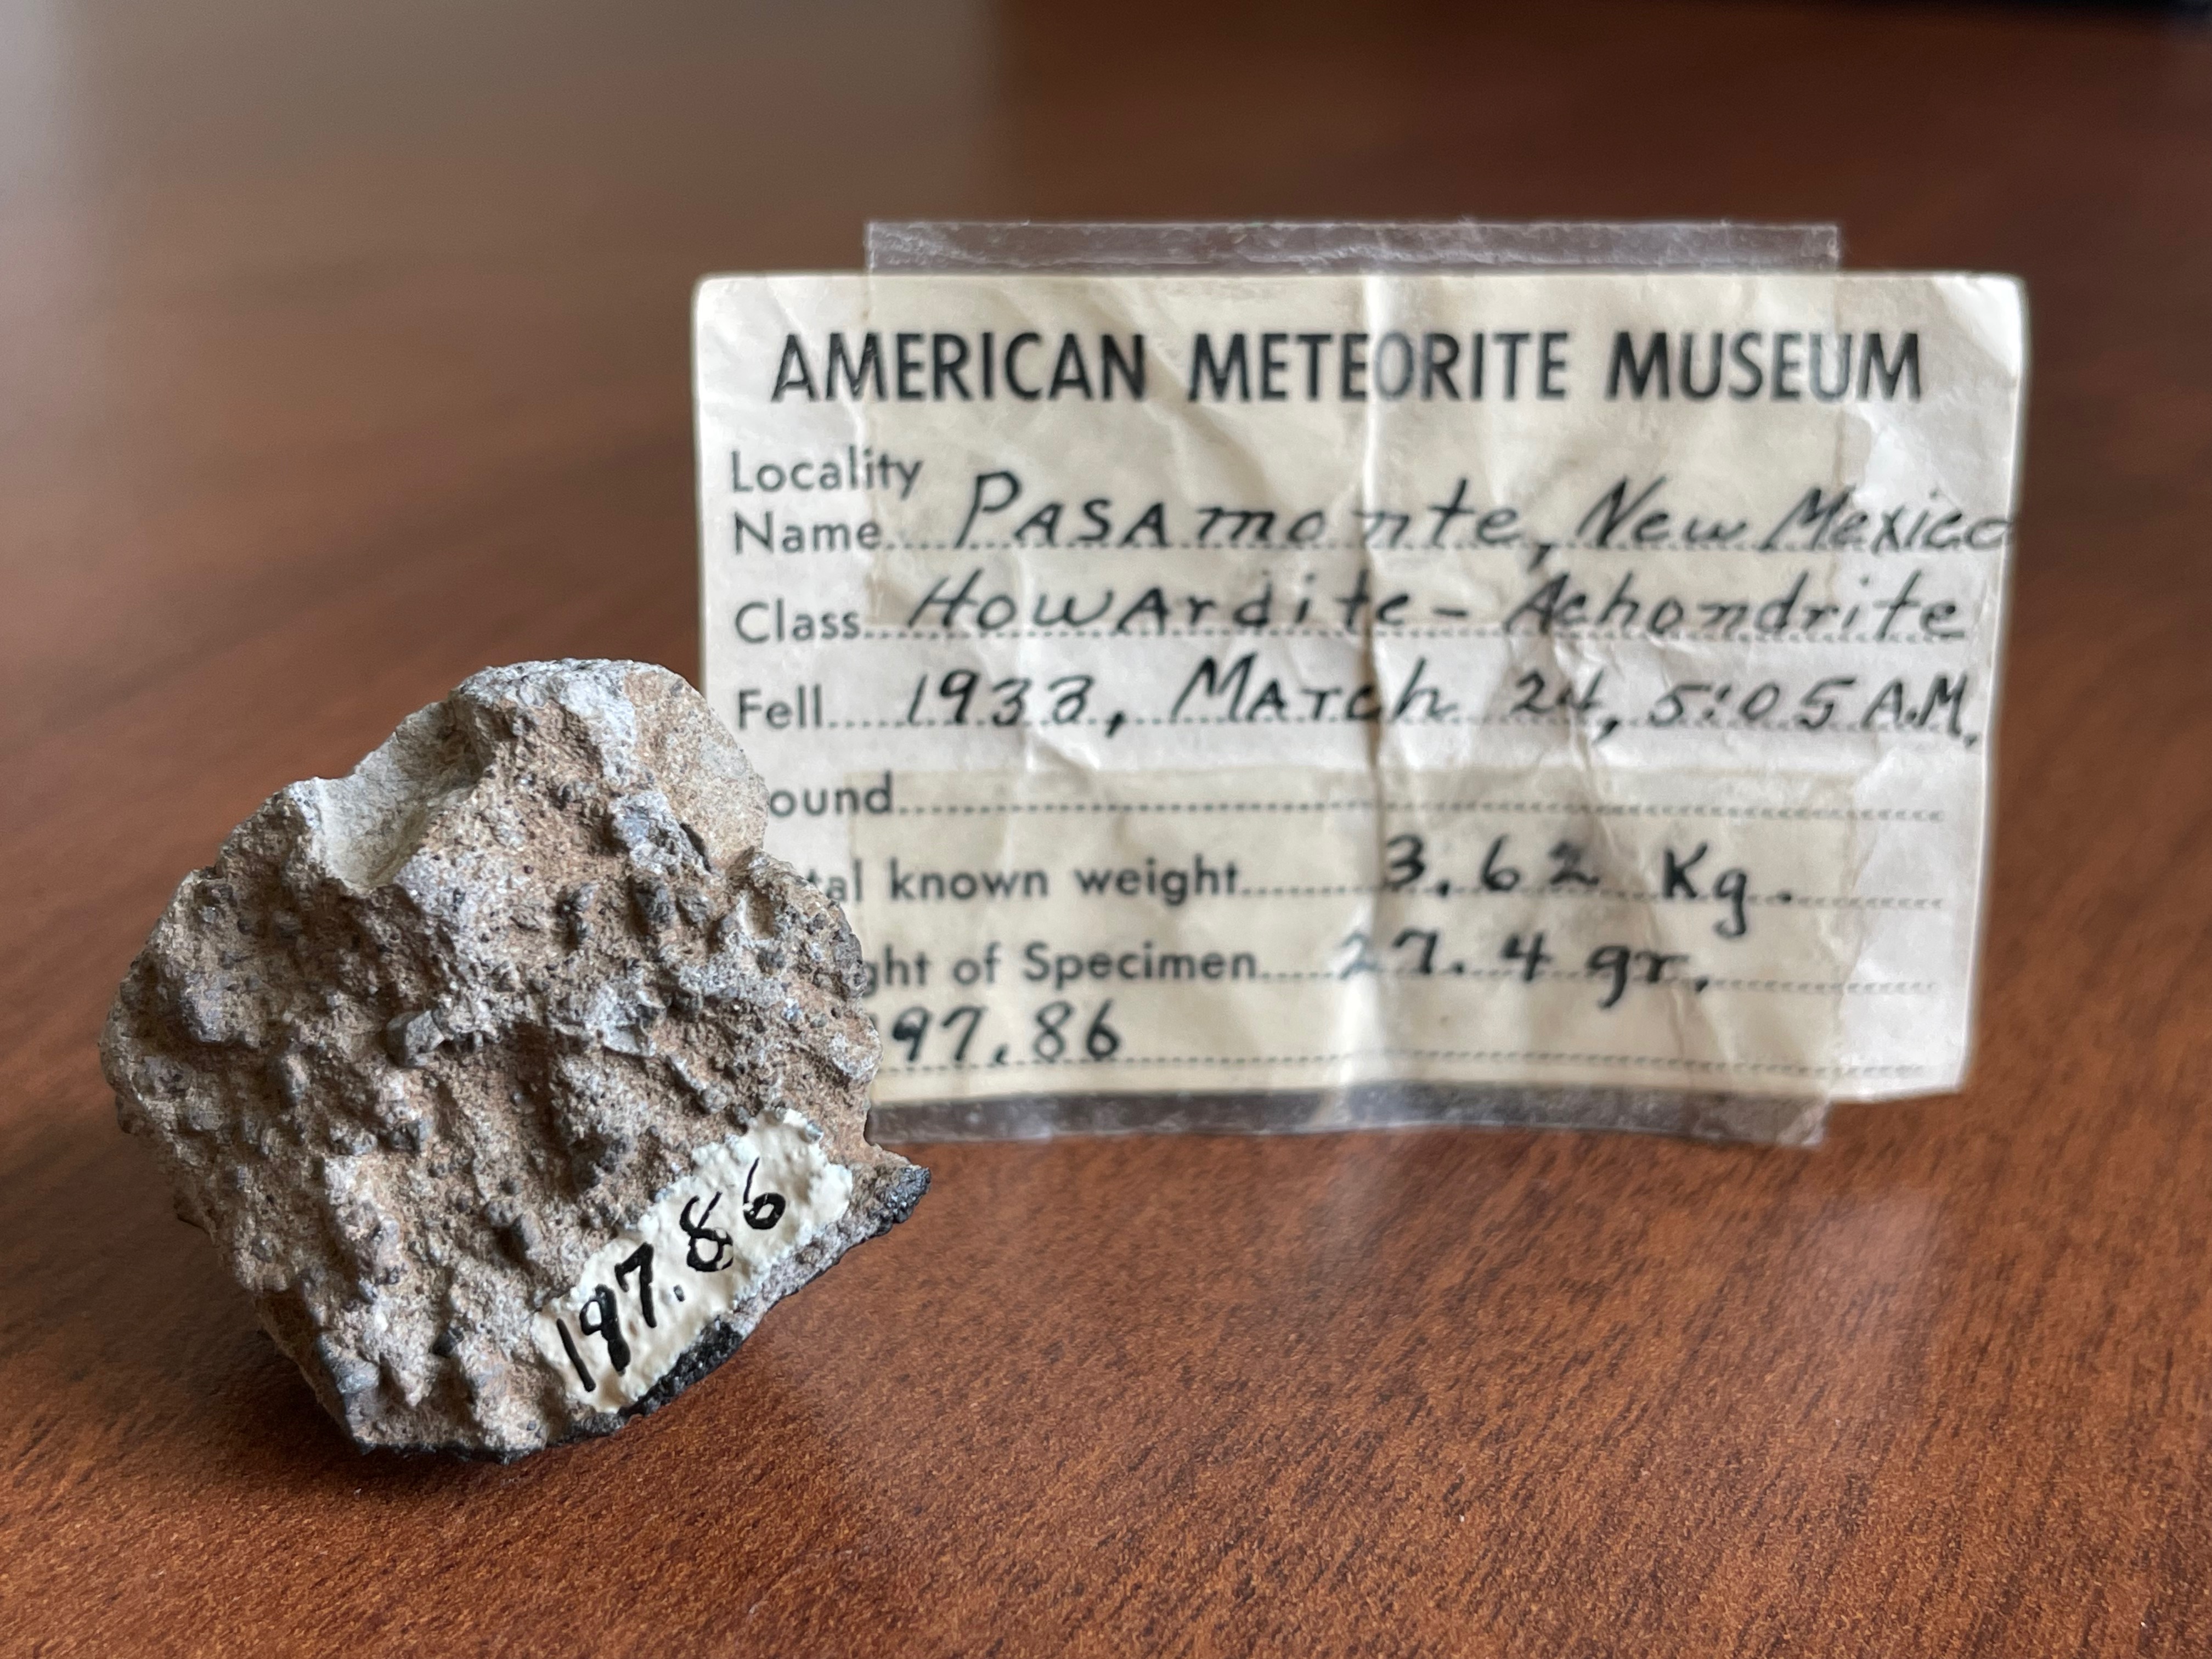 AMERICAN METEORITE MUSEUM
Locality
Name.....PASAmonte, New Mexico
Class.....HowArdite - Achondrite
Fell.....1933, MArch 24, 5:05 A.M.
ound.....
tal known weight.....3.62 Kg.
ght of Specimen.....27.4 gr.
97.86
197.86